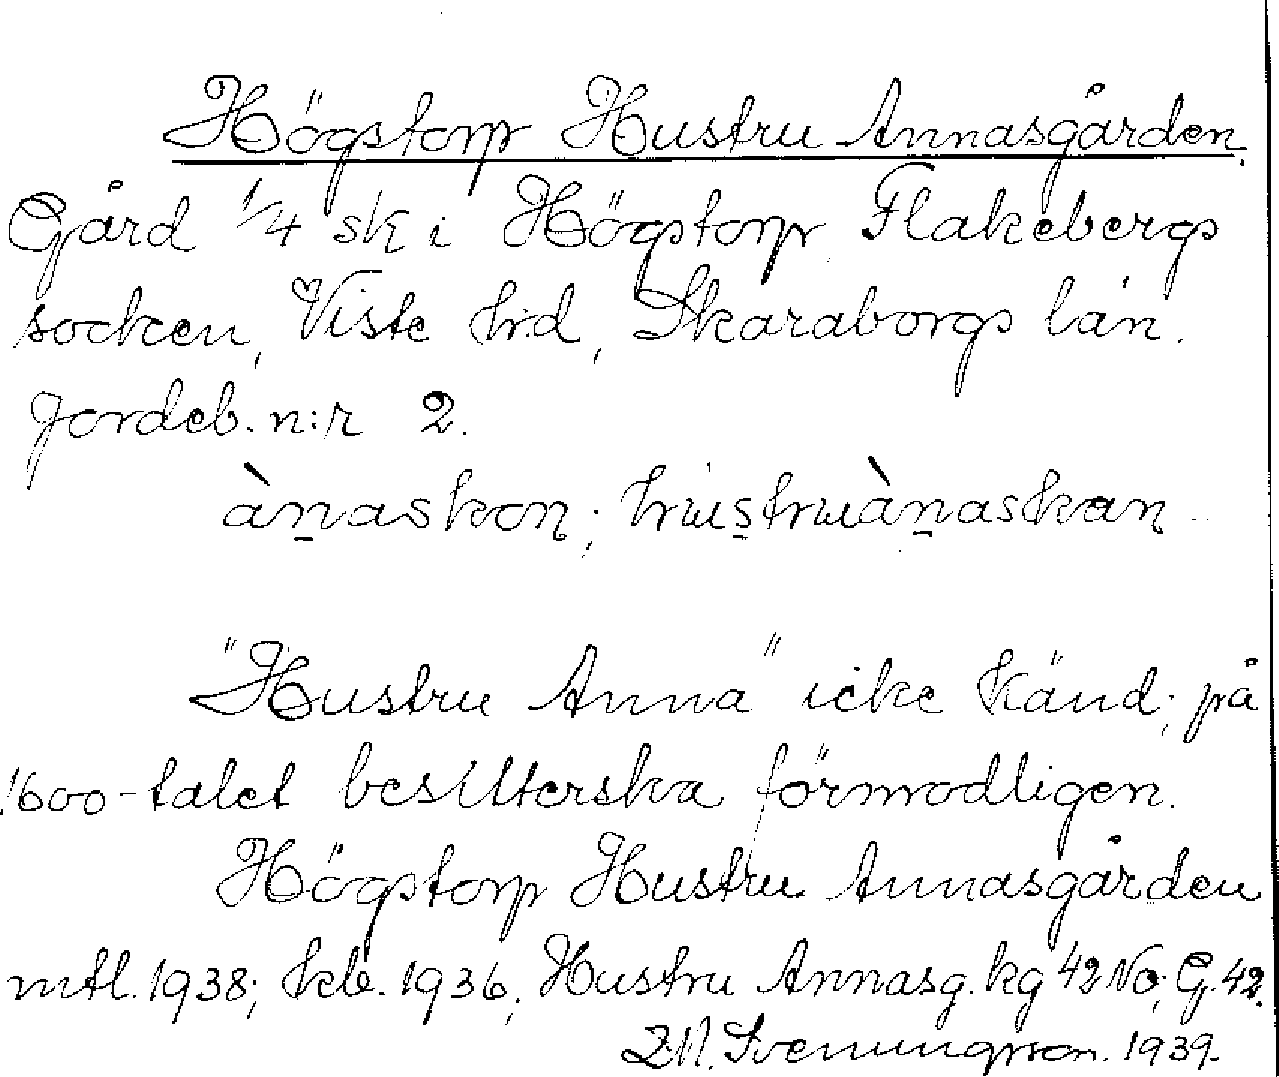 Högstorp Hustru Annasgården
Gård 1/4 sk i Högstorp Flakebergs
socken, Viste hd, Skaraborgs län.
Jordeb. n:r 2.
ànaskon; hustruànaskan
"Hustru Anna" icke känd; på
1600-talet besitterska förmodligen.
Högstorp Hustru Annasgården
mtl. 1938; kb. 1936, Hustru Annasg. kg 42 No; G. 42.
Svenungsson. 1939.